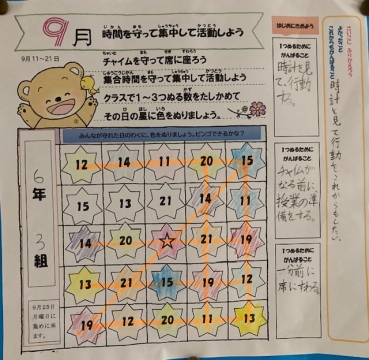 9月
時間を守って集中して活動しよう
9月11~21日
チャイムを守って席に座ろう
集合時間を守って集中して活動しよう
クラスで1~3つぬる数をたしかめて
その日の星に色をぬりましょう。
みんなが守れた日のわくに、色をぬりましょう。ビンゴできるかな?
12 14 11 20 15
15 11 21 14 11
14 20 ☆ 21 19
13 21 15 19 12
19 12 20 11 13
6年3組
9月25日
月曜日に
集めに来
ます。
はじめにきめよう
1つぬるために
がんばること
時計を見
て、行動
する。
1つぬるために
がんばること
チャイムが
なる前に
授業の準
備をする。
1つぬるために
がんばること
一分前に
席にすわる。
時計を見て行動をこれからもしたい。